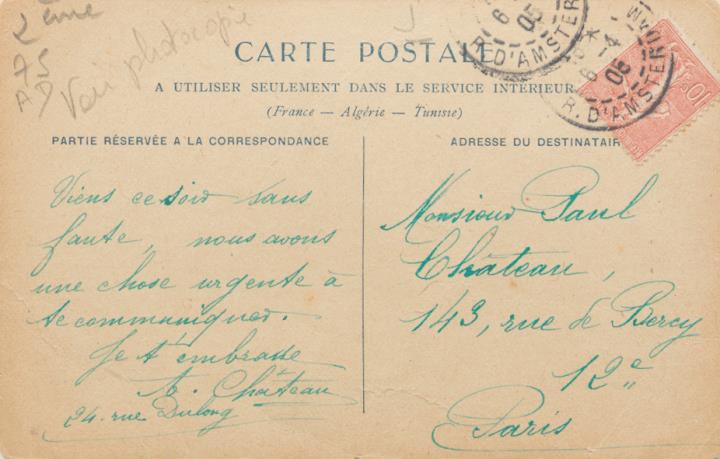 2ème
75
AD
Voir photocopie
J
CARTE POSTALE
A UTILISER SEULEMENT DANS LE SERVICE INTÉRIEUR
(France — Algérie — Tunisie)
PARTIE RÉSERVÉE A LA CORRESPONDANCE
Viens ce soir sans
faute, nous avons
une chose urgente à
te communiquer.
Je t'embrasse
A. Château
24. rue Dulong
ADRESSE DU DESTINATAIR
Monsieur Paul
Château,
143, rue de Bercy
12e
Paris
R. D'AMSTER
6
05
R. D'AMSTERDAM
6
4
06
10